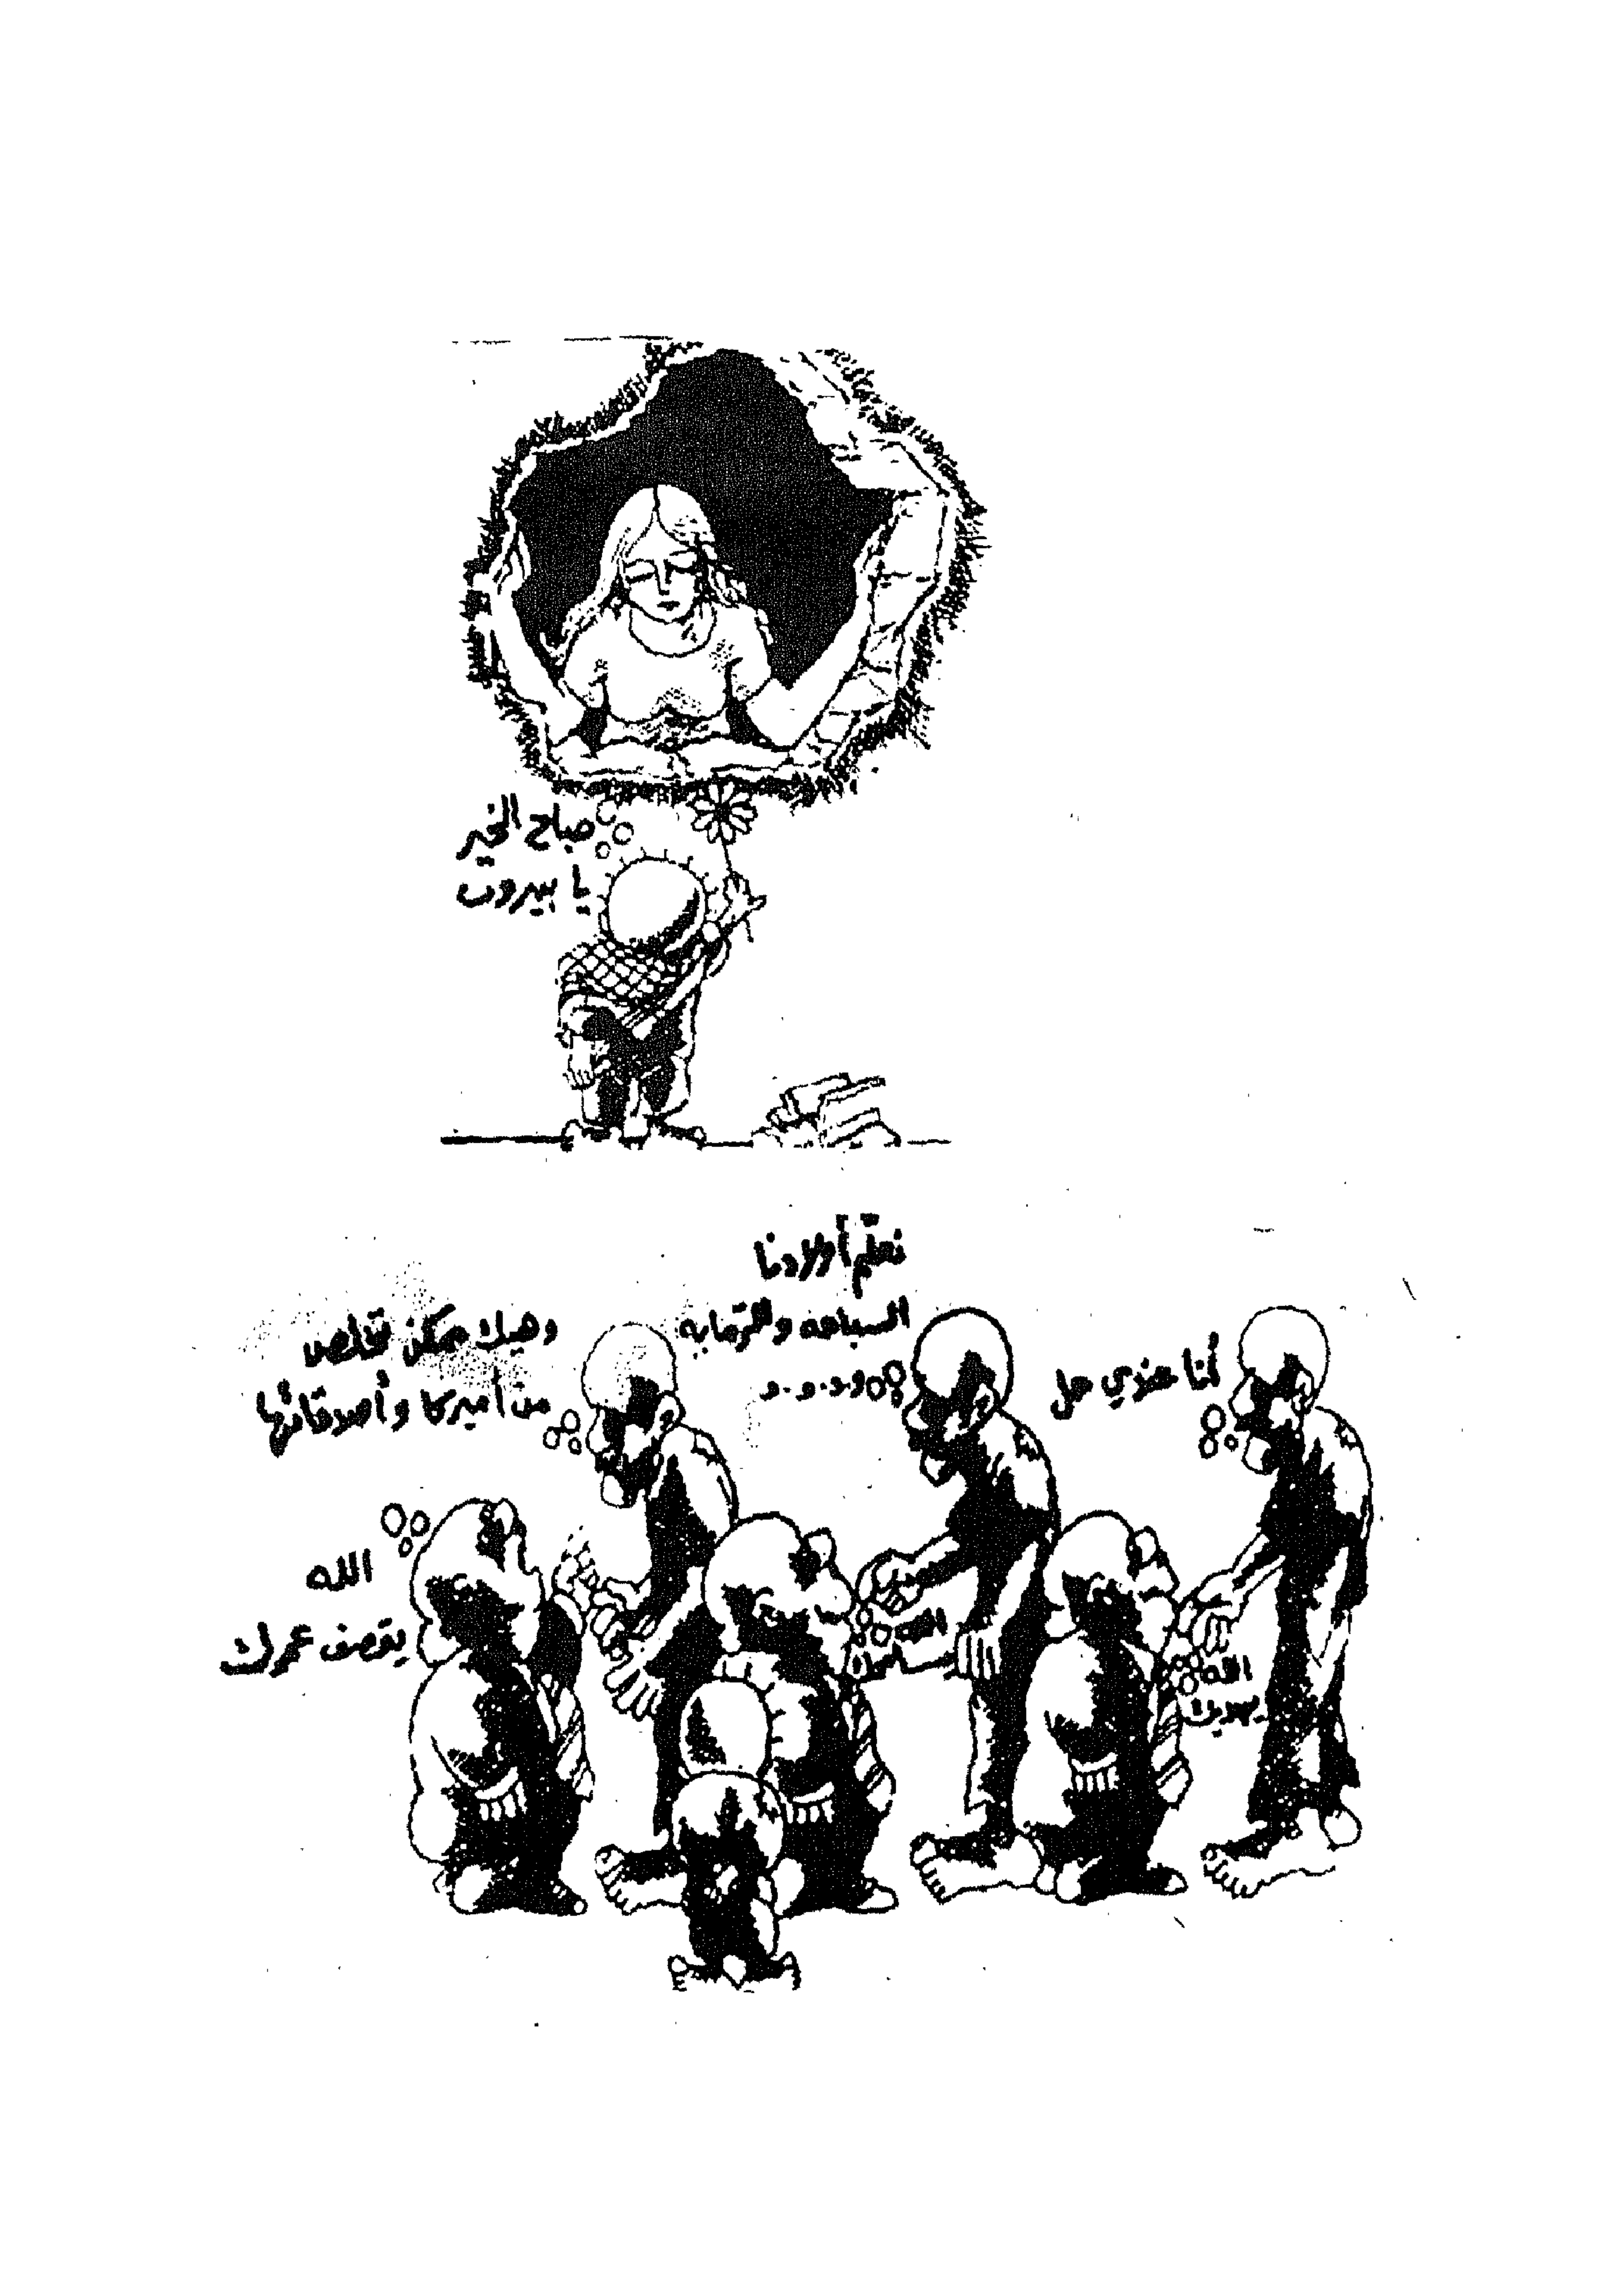 صباح الخير
يا بيروت
أنا عندي حل
الله
يهديك
نعلّم أولادنا
السباحه والرّمايه
و.و.و.و
الله
وهيك ممكن نخلص
من أميركا وأصدقائها
الله
يقصف عمرك